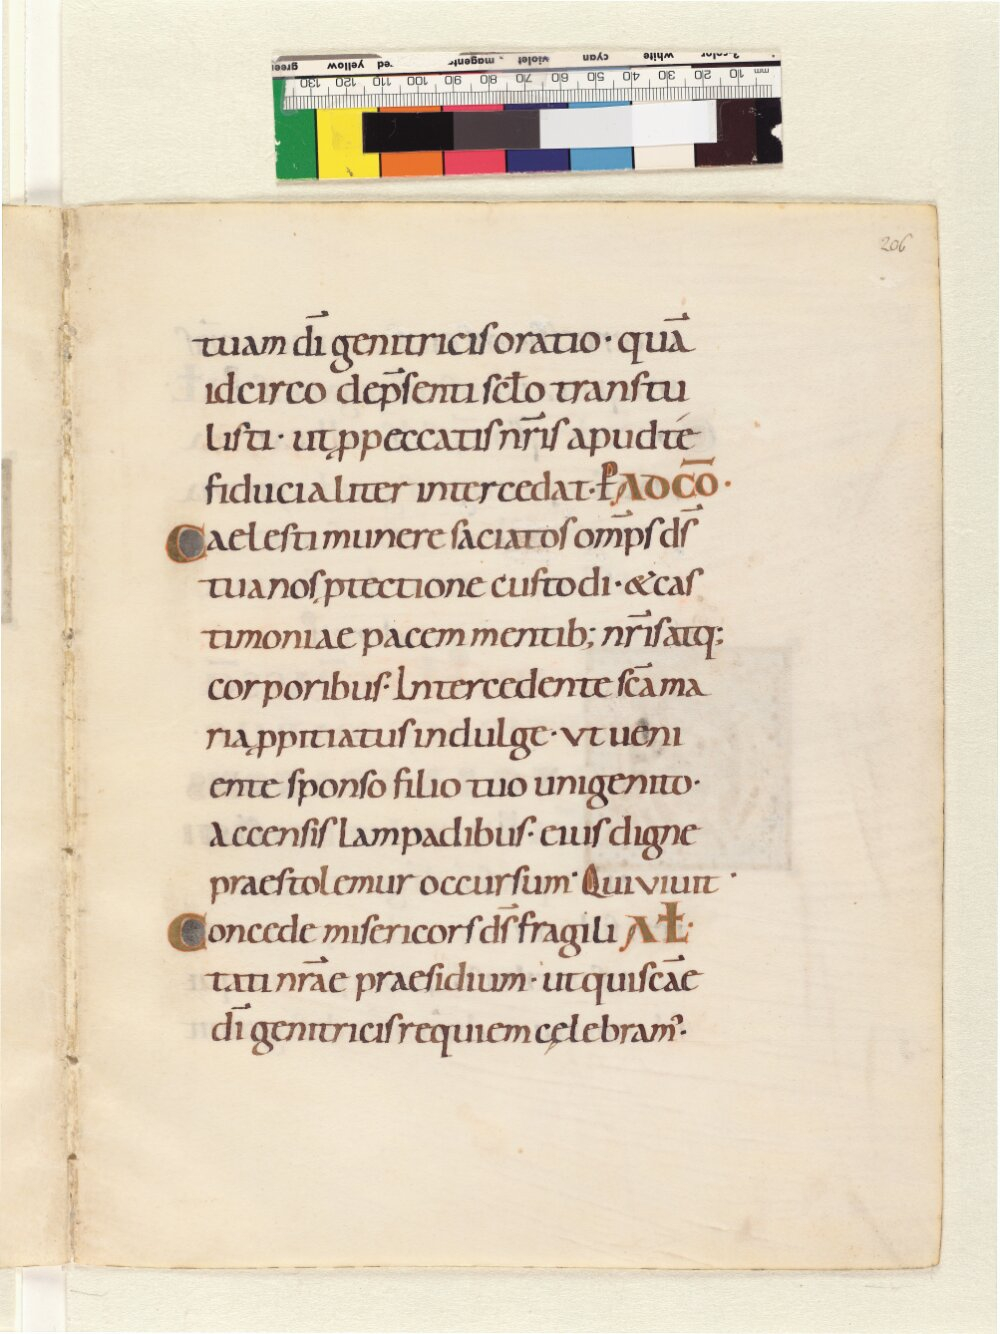 206
tuam dī genitricis oratio· quā
idcirco dep̄senti sc̄lo transtu
listi· ut ꝓ peccatis nr̄is apud té
fiducialiter intercedat· P̄ AD CŌ·
Caelesti munere saciatos omp̄s ds̄
tua nos ꝓtectione custodi· & cas
timoniae pacem mentib; nr̄is atq:
corporibus· Intercedente sc̄a ma
ria ꝓpitiatus indulge· ut ueni
ente sponso filio tuo unigenito·
accensis lampadibus· eius digne
praestolemur occursum· Qui viuit·
Concede misericors ds̄ fragili AŁ·
tati nr̄ae praesidium· ut qui sc̄ae
dī genitricis requiem cęlebram᾽·